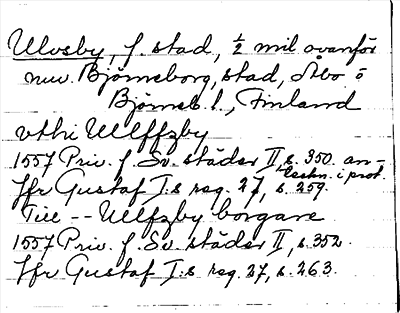 Ulvsby, f. stad, ½ mil ovanför
nuv. Björneborg, stad, Åbo o
Björneb. l., Finland
vthi Ulffzby
1557 Priv. f. Sv. städer II, s. 350. an-
teckn. i prot.
Jfr Gustaf I:s reg. 27, s. 259.
Till -- Ulfzby borgare
1557 Priv. f. Sv. städer II, s. 352.
Jfr Gustaf I:s reg. 27, s. 263.